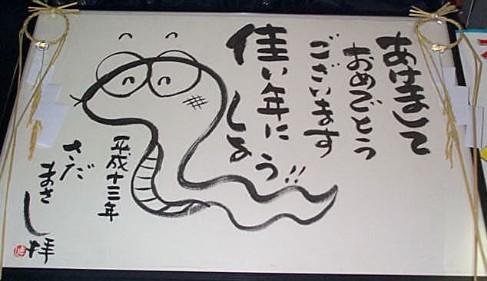 あけまして
おめでとう
ございます
佳い年に
しよう!!
平成十三年
さだ
まさし拝